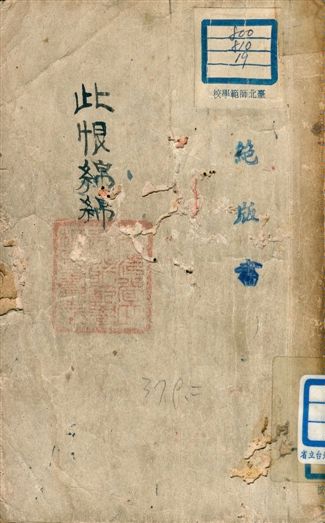 800
810
19
臺北師範學校
絕版書
此恨綿綿
省立台